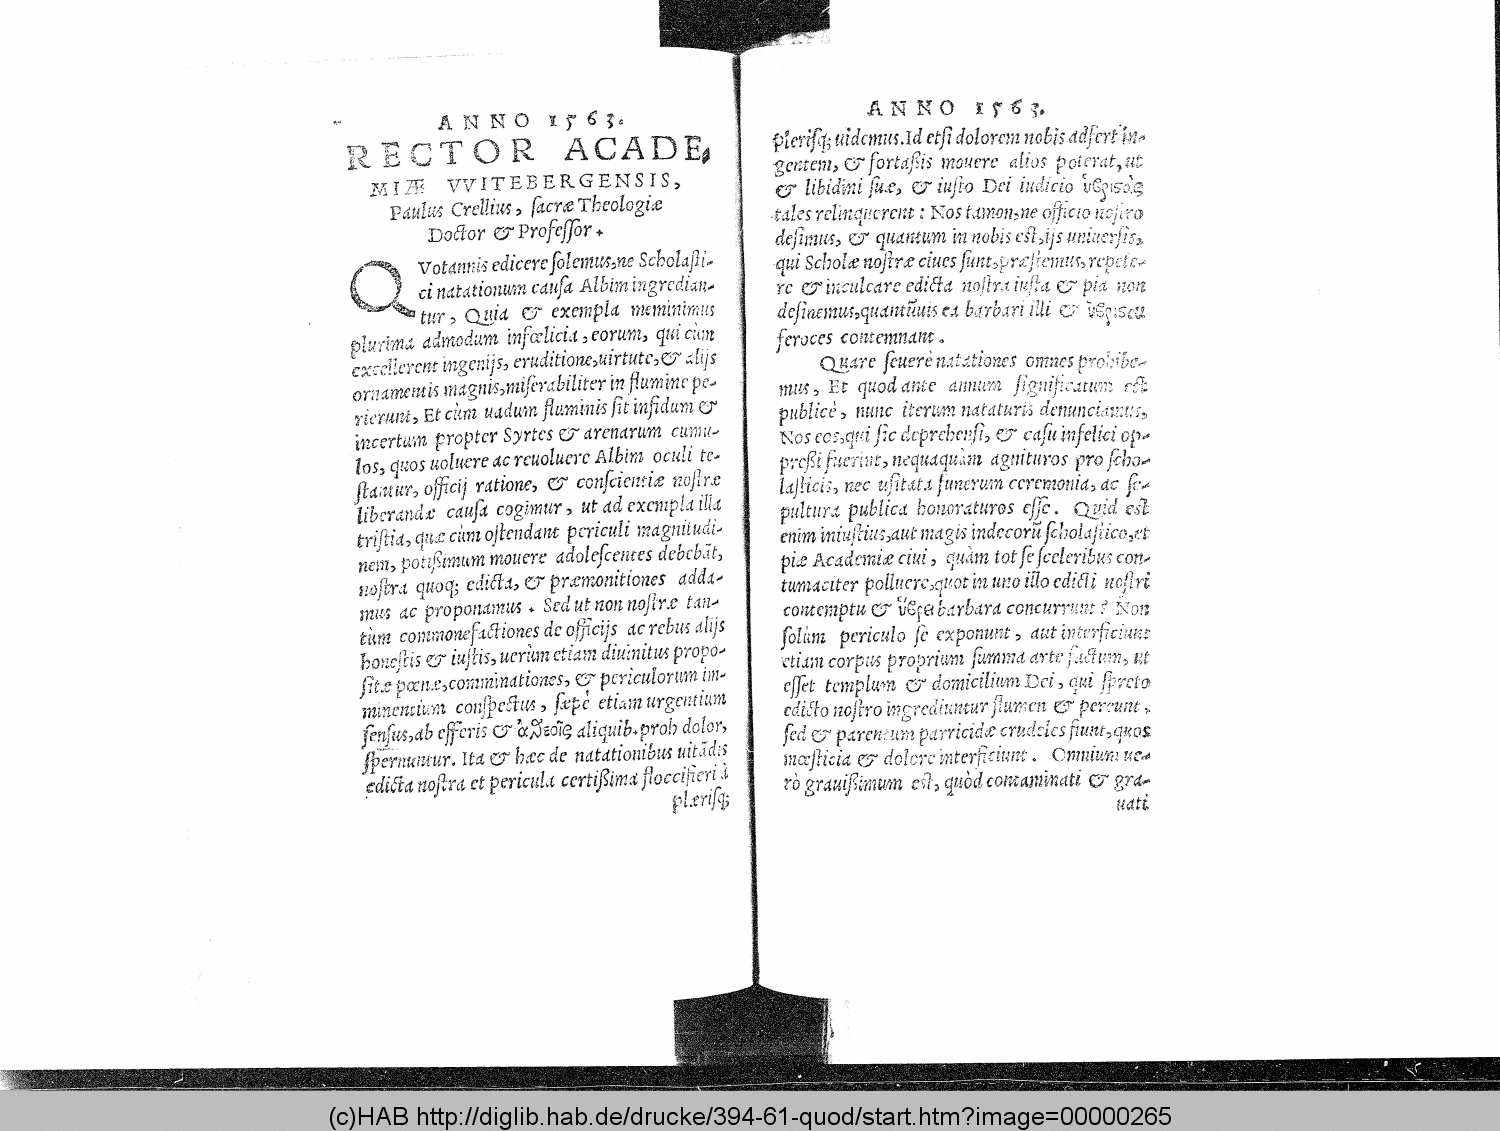 ANNO 1563.
RECTOR ACADE,
MIÆ VVITEBERGENSIS,
Paulus Crellius, ſacræ Theologiæ
Doctor & Profeſſor.
QVotannis edicere ſolemus,ne Scholaſti-
ci natationum cauſa Albim ingredian-
tur, Quia & exempla meminimus
plurima admodum infœlicia, eorum, qui cùm
excellerent ingenijs, eruditione,uirtute,& alijs
ornamentis magnis,miſerabiliter in flumine pe-
rierunt, Et cùm uadum fluminis ſit infidum &
incertum propter Syrtes & arenarum cumu-
los, quos uoluere ac reuoluere Albim oculi te-
ſtantur, officij ratione, & conſcientiæ noſtræ
liberandæ cauſa cogimur, ut ad exempla illa
triſtia, quæ cùm oſtendant periculi magnitudi-
nem, potißimum mouere adoleſcentes debebāt,
noſtra quoq; edicta, & præmonitiones adda-
mus ac proponamus. Sed ut non noſtræ tan-
tùm commonefactiones de officijs ac rebus alijs
honeſtis & iuſtis, uerùm etiam diuinitus propo-
ſitæ pœnæ,comminationes, & periculorum im-
minentium conſpectus, ſæpè etiam urgentium
ſenſus,ab efferis & ἀθεοῖς aliquib.proh dolor,
ſpernuntur. Ita & hæc de natationibus uitādis
edicta noſtra et pericula certißima floccifieri à
plæriſq;
ANNO 1563.
pleriſq; uidemus.Id etſi dolorem nobis adfert in-
gentem, & fortaßis mouere alios poterat, ut
& libidini ſuæ, & iuſto Dei iudicio ὑβριστὰς
tales relinquerent: Nos tamen,ne officio noſtro
deſimus, & quantum in nobis est,ijs uniuerſis,
qui Scholæ noſtræ ciues ſunt,præſtemus,repete-
re & inculcare edicta noſtra iuſta & pia non
deſinemus,quantūuis ea barbari illi & ὑβρισταὶ
feroces contemnant.
Quare ſeuerè natationes omnes prohibe-
mus, Et quod ante annum ſignificatum est
publicè, nunc iterum nataturis denunciamus,
Nos eos,qui ſic deprehenſi, & caſu infelici op-
preßi fuerint, nequaquàm agnituros pro ſcho-
laſticis, nec uſitata funerum ceremonia, ac ſe-
pultura publica honoraturos eſſe. Quid est
enim iniuſtius,aut magis indecorū ſcholaſtico,et
piæ Academiæ ciui, quàm tot ſe ſceleribus con-
tumaciter polluere,quot in uno illo edicti noſtri
contemptu & ὕβρει barbara concurrunt? Non
ſolùm periculo ſe exponunt, aut interficiunt
etiam corpus proprium ſumma arte factum, ut
eſſet templum & domicilium Dei, qui ſpreto
edicto noſtro ingrediuntur flumen & pereunt,
ſed & parentum parricidæ crudeles fiunt,quos
mœſticia & dolore interficiunt. Omnium ue-
rò grauißimum est, quòd contaminati & gra-
uati
(c)HAB http://diglib.hab.de/drucke/394-61-quod/start.htm?image=00000265